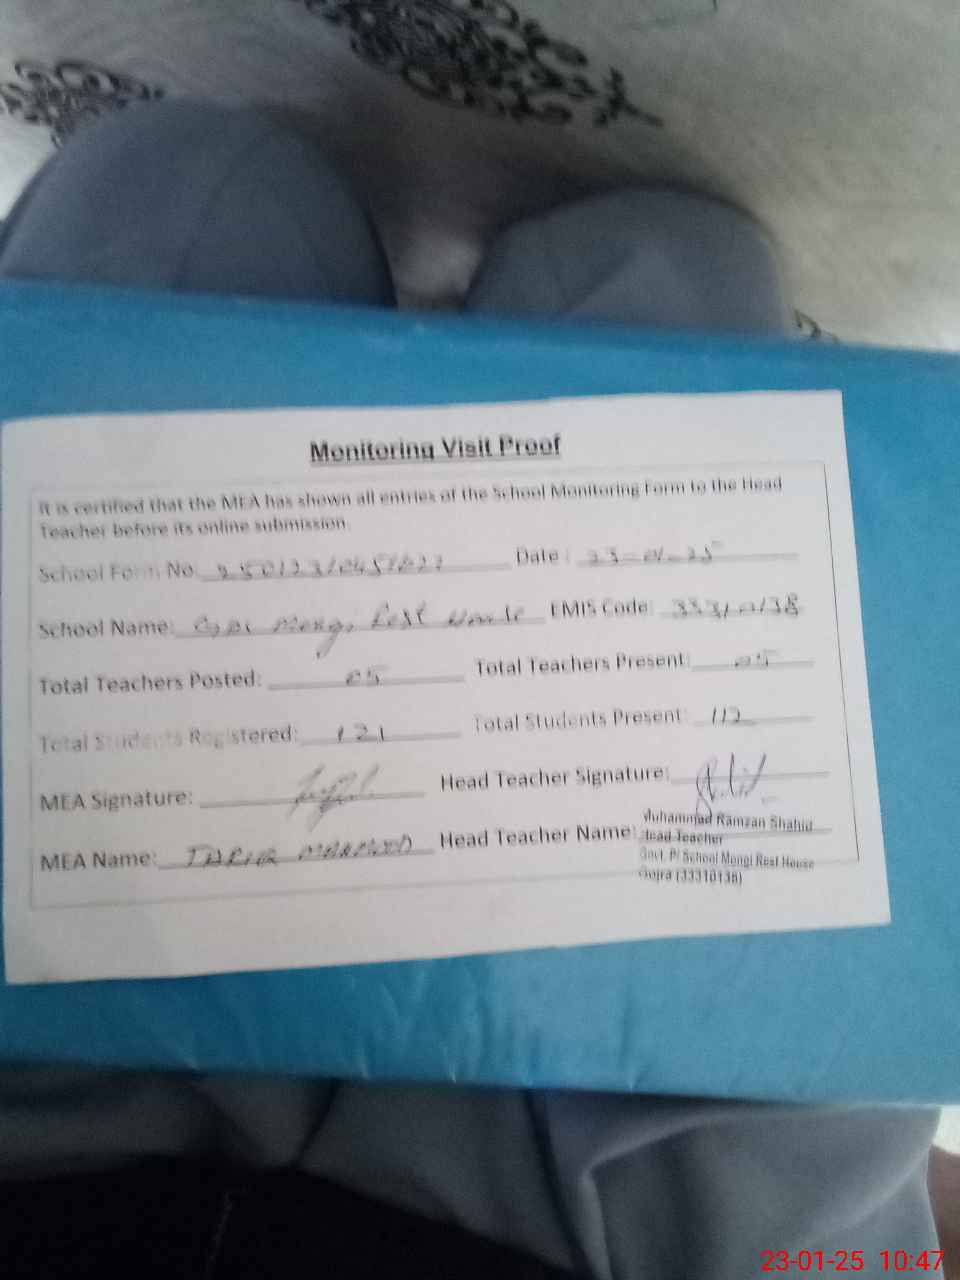 Monitoring Visit Proof
It is certified that the MEA has shown all entries of the School Monitoring Form to the Head
Teacher before its online submission
School Form No. Date : 23-01-25
School Name: Mongi Rest House EMIS Code: 33310138
Total Teachers Posted: 05 Total Teachers Present: 05
Total Students Registered: 121 Total Students Present: 112
MEA Signature: Head Teacher Signature:
MEA Name: TARIQ MAHMOOD Head Teacher Name:
Muhammad Ramzan Shahid
Head Teacher
Govt. P/ School Mongi Rest House
Gojra (33310138)
23-01-25 10:47